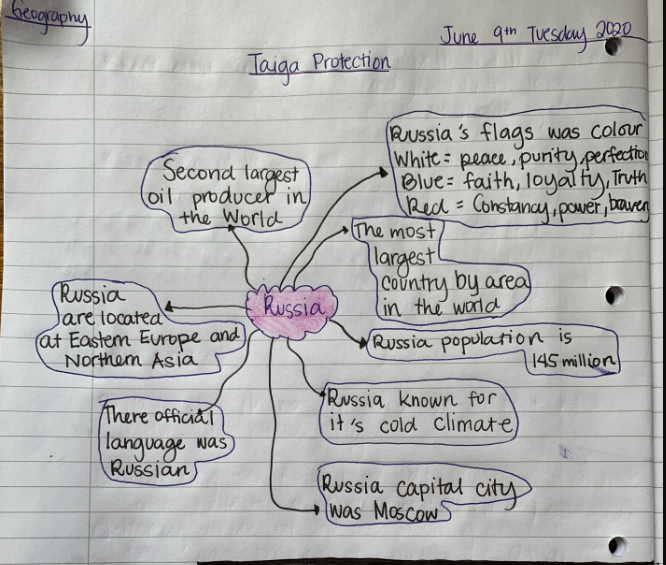 Geography
June 9th Tuesday 2020
Taiga Protection
Russia's flags was colour
White = peace, purity, perfection
Blue = faith, loyalty, Truth
Red = Constancy, power,
Second largest
oil producer in
the World
The most
largest
country by area
in the world
Russia
Russia
are located
at Eastern Europe and
Northern Asia
Russia population is
145 million
Russia known for
it's cold climate
There official
language was
Russian
Russia capital city
was Moscow